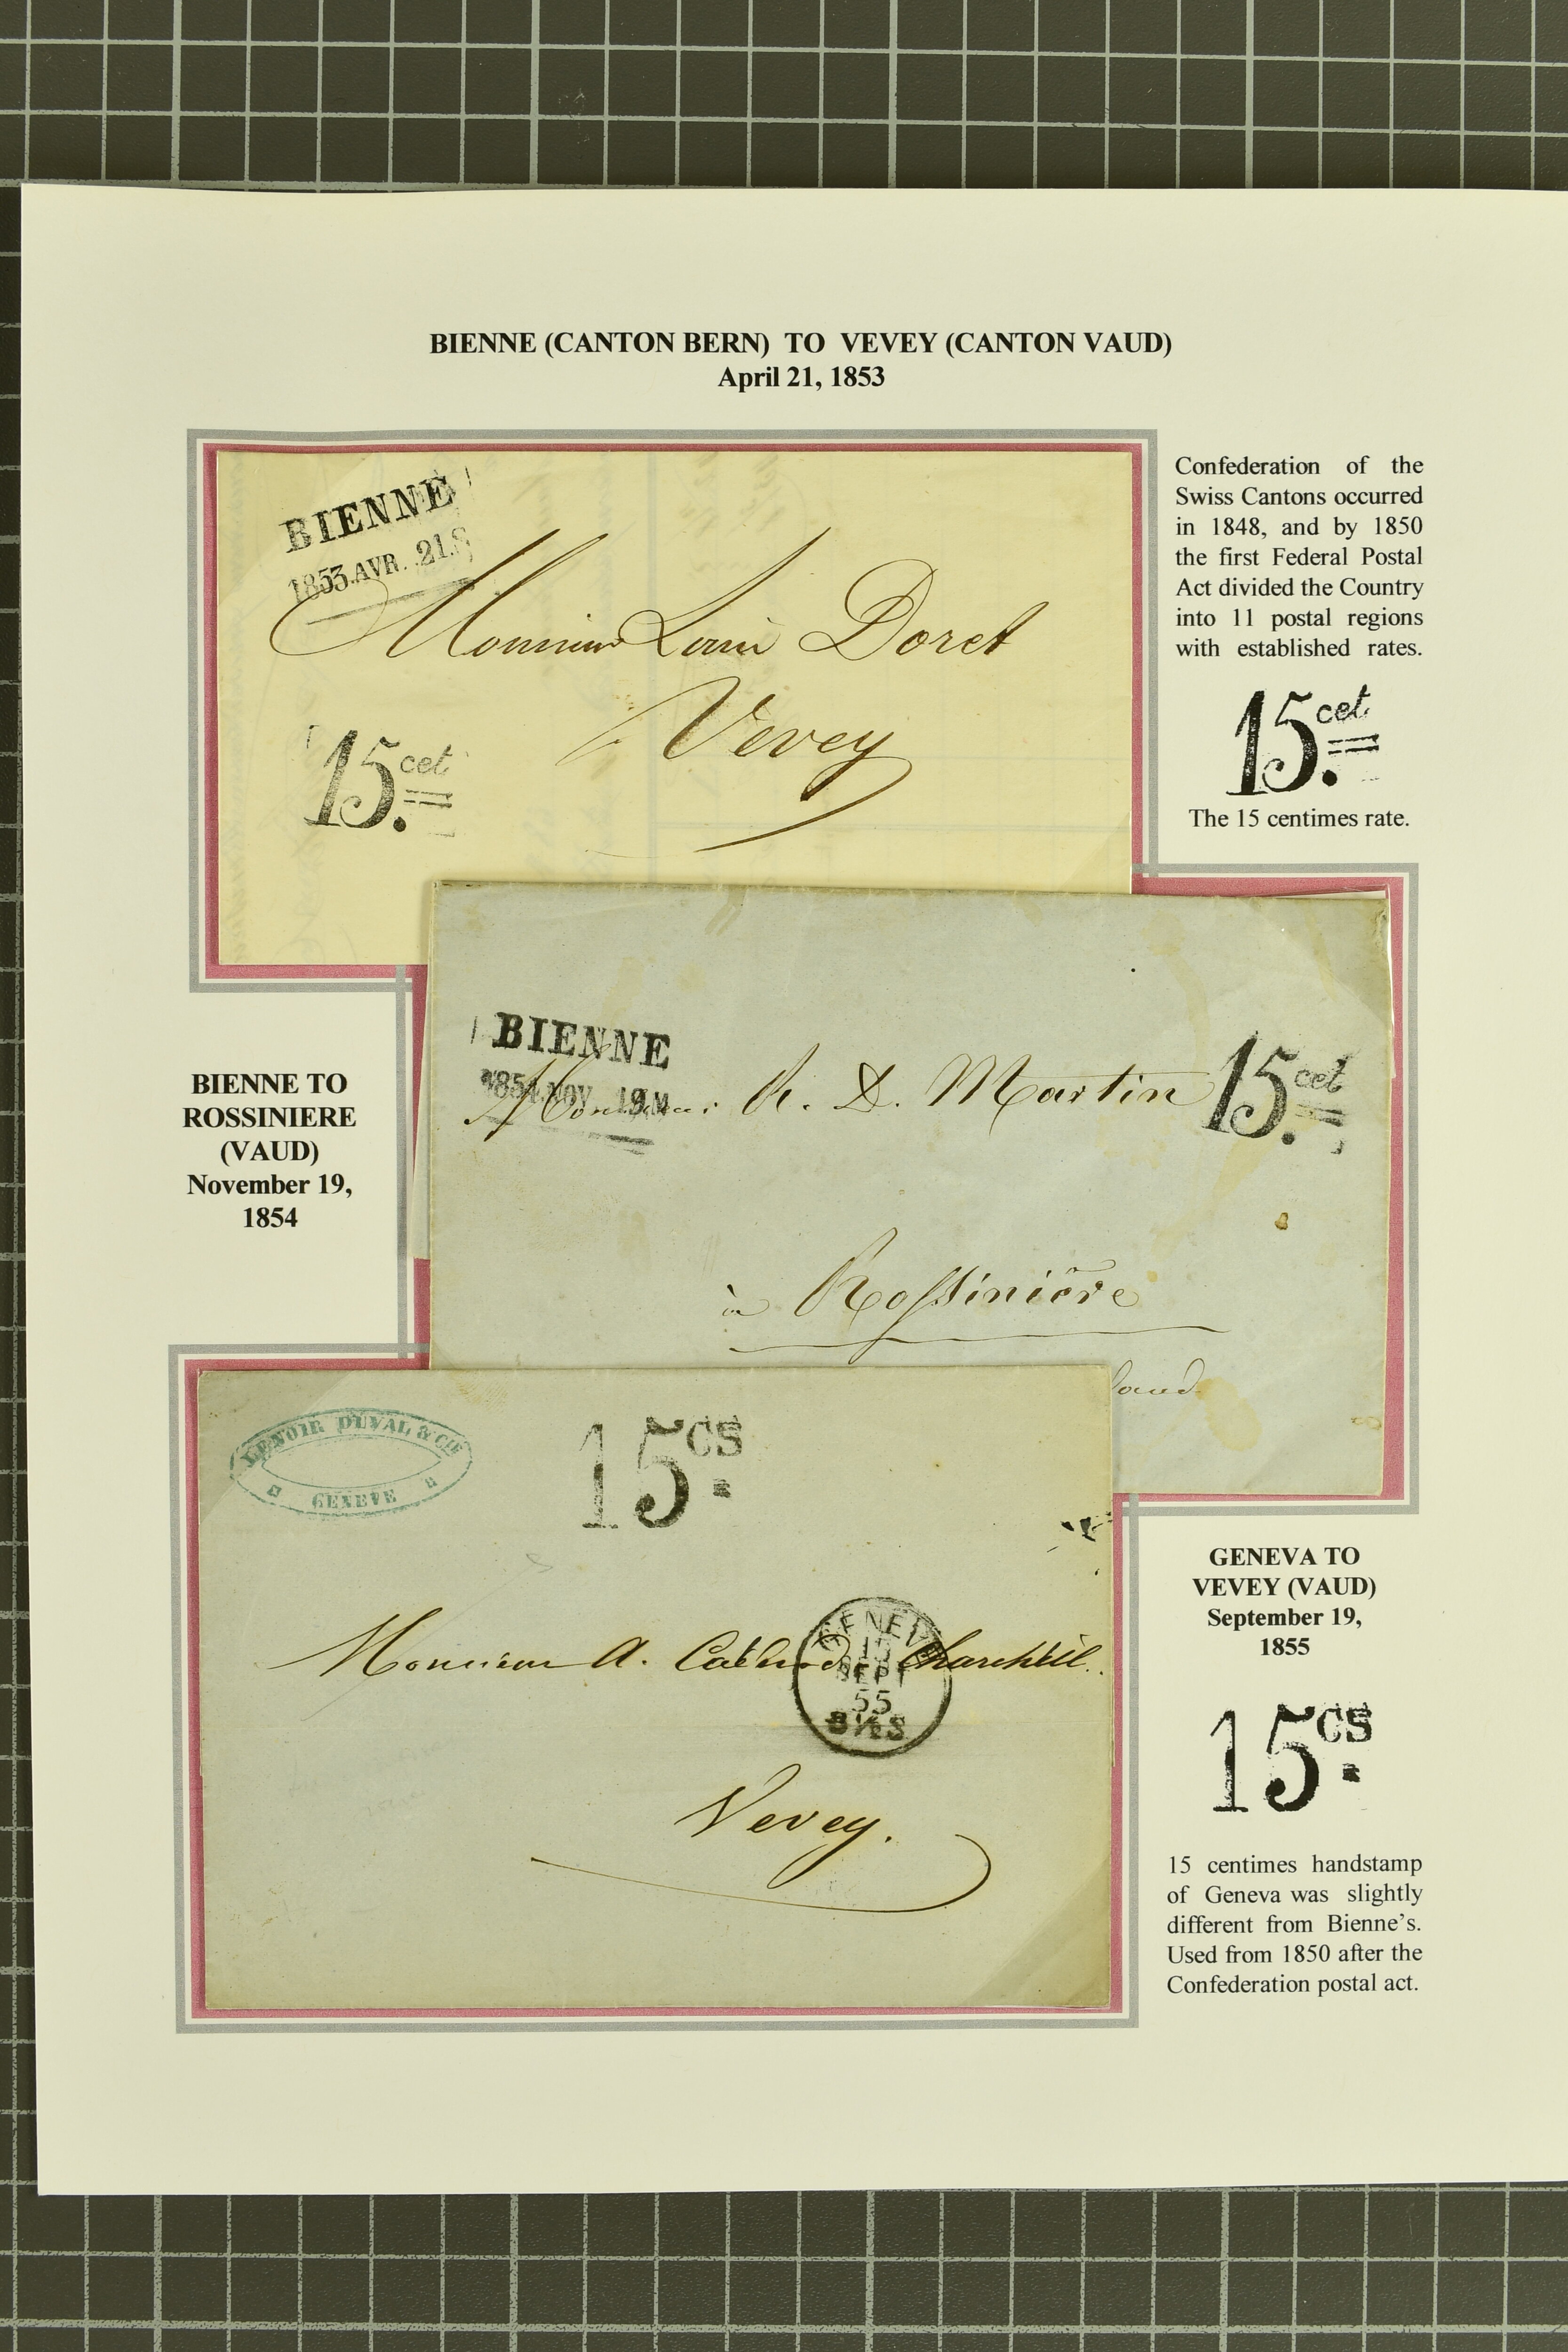 BIENNE (CANTON BERN) TO VEVEY (CANTON VAUD)
April 21, 1853
BIENNE
1853.AVR. .21.S
Monsieur Louis Doret
Vevey
15 cet.
Confederation of the
Swiss Cantons occurred
in 1848, and by 1850
the first Federal Postal
Act divided the Country
into 11 postal regions
with established rates.
15 cet.
The 15 centimes rate.
BIENNE TO
ROSSINIERE
(VAUD)
November 19,
1854
BIENNE
1854.NOV 19.M
Monsieur R. D. Martin
15 cet
à Rossinière
Vaud
LENOIR DUVAL & CIE
GENEVE
15 CS
GENEVE
SEPT
55
8½S
Monsieur A.
Vevey.
GENEVA TO
VEVEY (VAUD)
September 19,
1855
15 CS
15 centimes handstamp
of Geneva was slightly
different from Bienne's.
Used from 1850 after the
Confederation postal act.